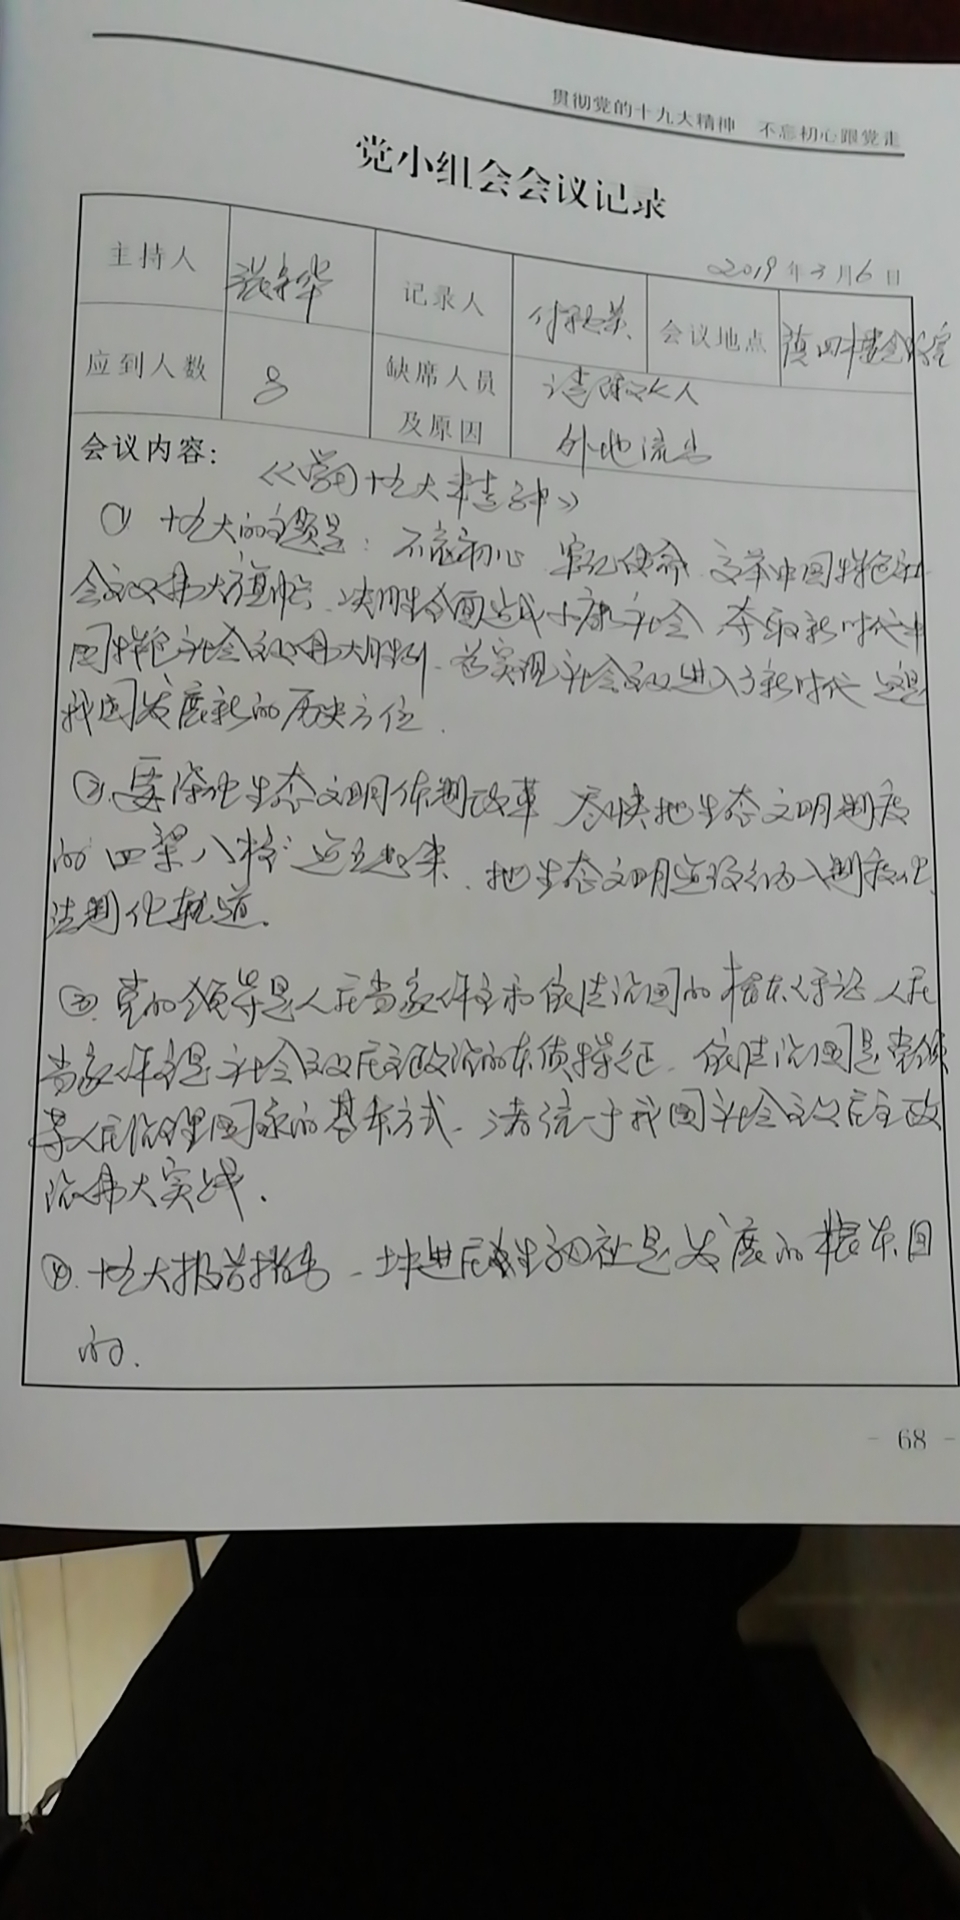 贯彻党的十九大精神 不忘初心跟党走
党小组会会议记录
2019年3月6日
主持人 记录人 会议地点 镇四楼会议室
应到人数 8 缺席人员及原因
外地流出
会议内容:
《学习十九大精神》
① 十九大的主题是:不忘初心 牢记使命 高举中国特色社
会主义伟大旗帜、决胜全面建成小康社会、夺取新时代中
国特色社会主义伟大胜利、为实现社会主义进入了新时代 这是
我国发展新的历史方位.
②.要深化生态文明体制改革 尽快把生态文明制度
的四梁八柱建立起来、把生态文明建设纳入制度化
法制化轨道.
③.党的领导是人民当家作主和依法治国的根本保证 人民
当家作主是社会主义民主政治的本质特征、依法治国是党领
导人民治理国家的基本方式、三者统一于我国社会主义民主政
治伟大实践.
④.十九大报告指出、增进民生福祉是发展的根本目
的.
- 68 -